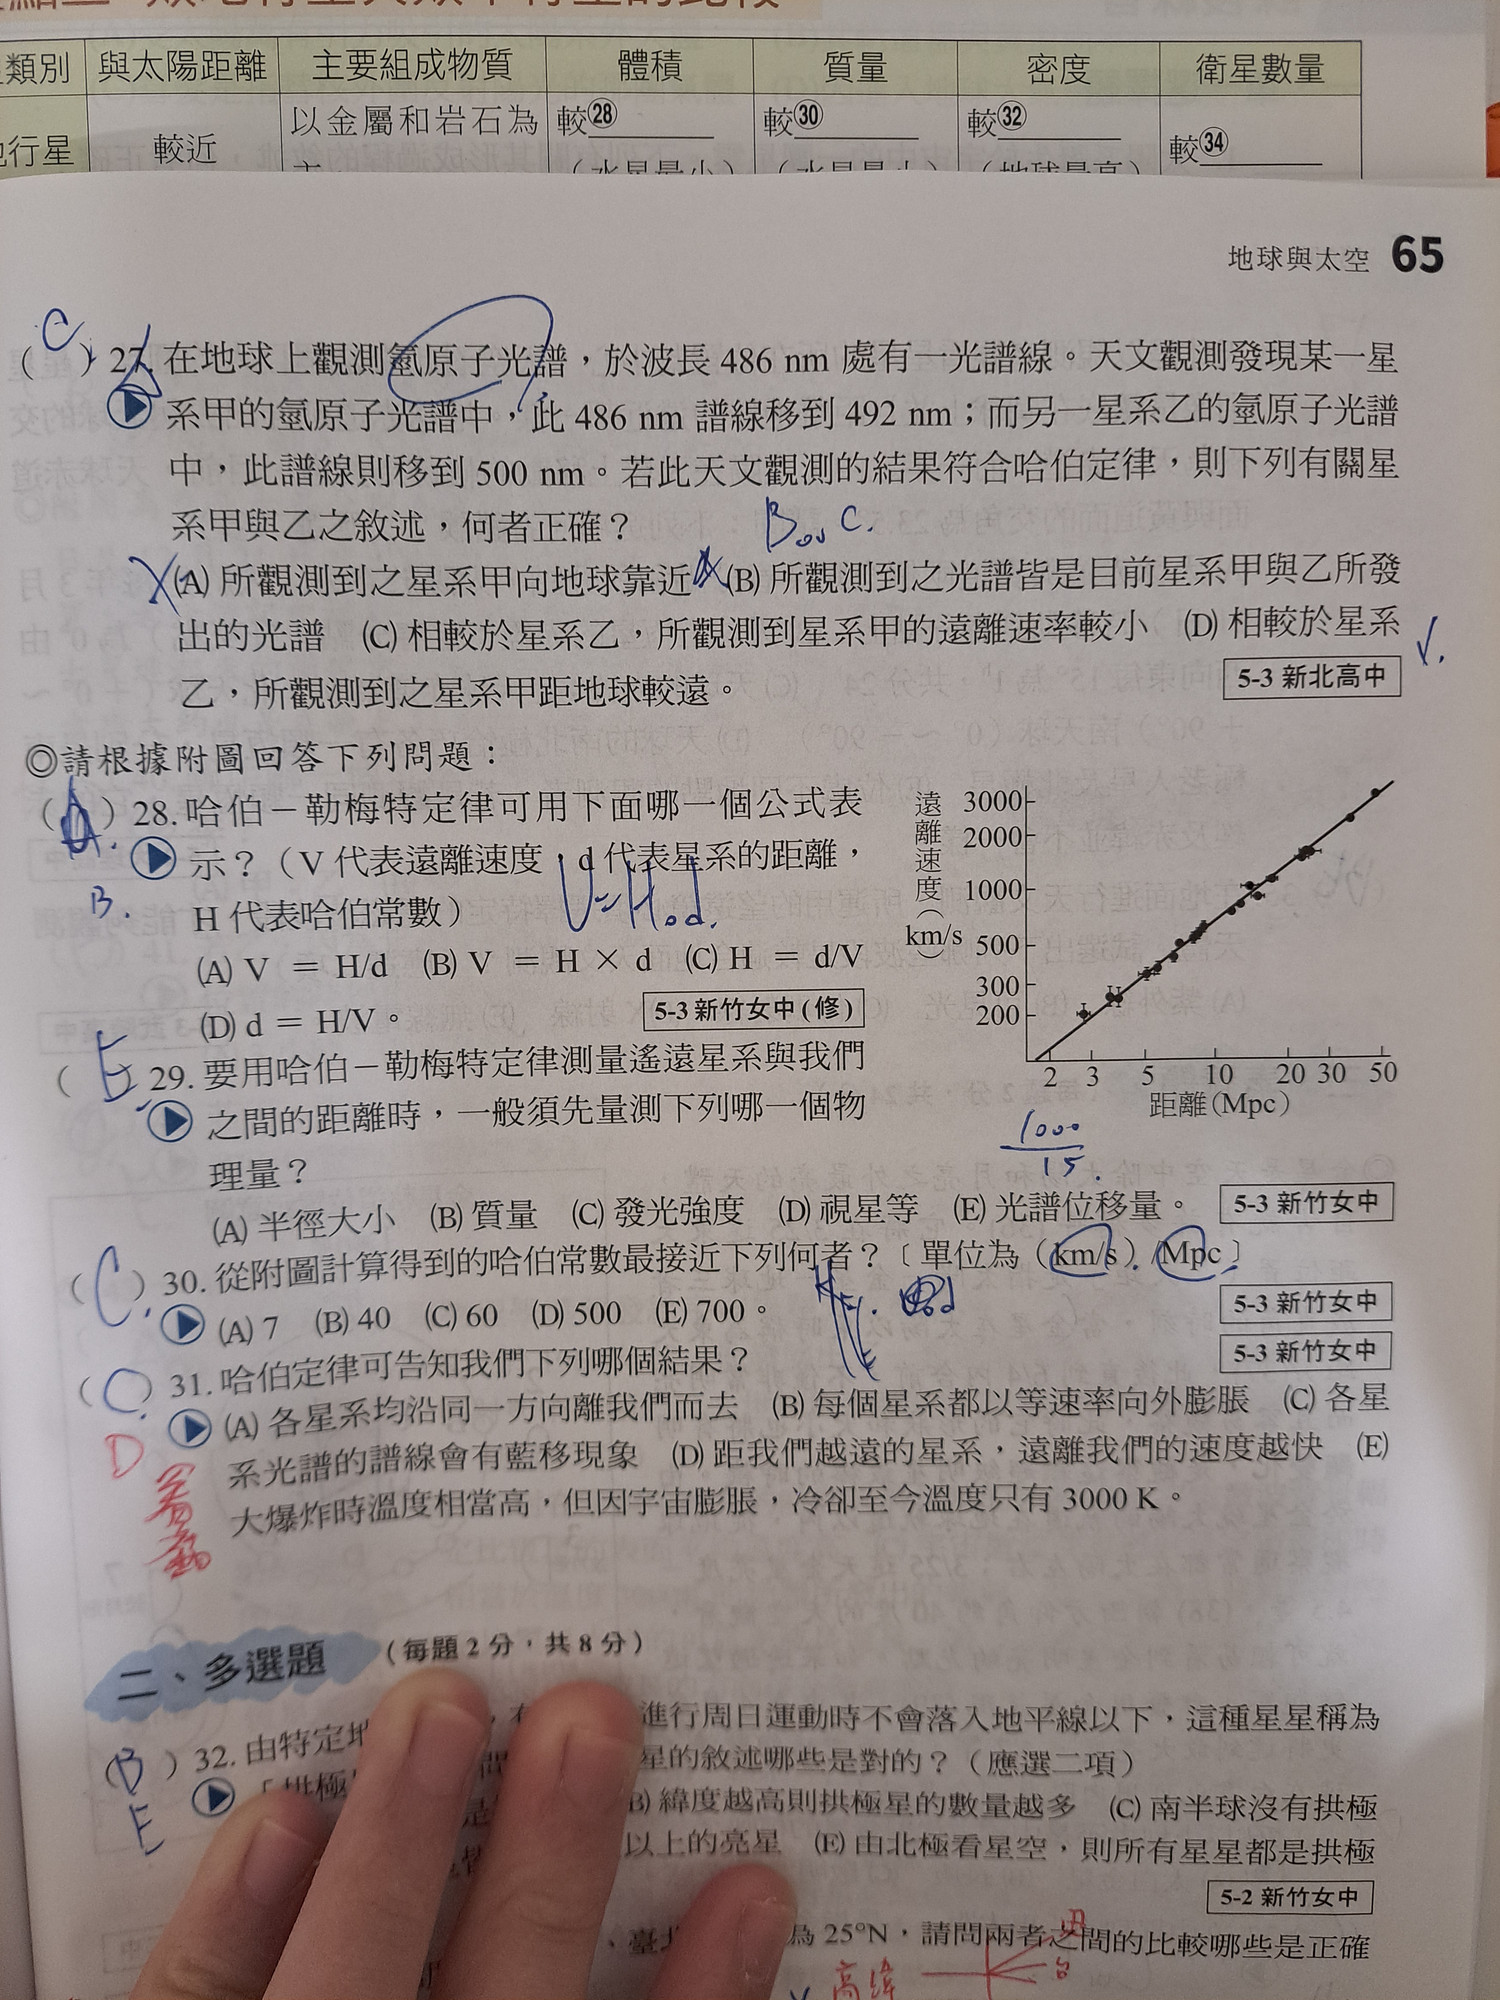 類別 與太陽距離 主要組成物質 體積 質量 密度 衛星數量
行星 較近 以金屬和岩石為 較㉘ 較㉚ 較㉜ 較㉞
地球與太空 65
( C ) 27. 在地球上觀測氫原子光譜，於波長 486 nm 處有一光譜線。天文觀測發現某一星
系甲的氫原子光譜中，此 486 nm 譜線移到 492 nm；而另一星系乙的氫原子光譜
中，此譜線則移到 500 nm。若此天文觀測的結果符合哈伯定律，則下列有關星
系甲與乙之敘述，何者正確？ B or C.
(A) 所觀測到之星系甲向地球靠近 (B) 所觀測到之光譜皆是目前星系甲與乙所發
出的光譜 (C) 相較於星系乙，所觀測到星系甲的遠離速率較小 (D) 相較於星系
乙，所觀測到之星系甲距地球較遠。 5-3 新北高中
◎請根據附圖回答下列問題：
( ) 28. 哈伯－勒梅特定律可用下面哪一個公式表
示？（V 代表遠離速度，d 代表星系的距離，
B. H 代表哈伯常數） V=H₀d.
(A) V = H/d (B) V = H × d (C) H = d/V
(D) d = H/V。 5-3 新竹女中(修)
遠離速度(km/s)
3000
2000
1000
500
300
200
2 3 5 10 20 30 50
距離(Mpc)
1000
15.
( E ) 29. 要用哈伯－勒梅特定律測量遙遠星系與我們
之間的距離時，一般須先量測下列哪一個物
理量？
(A) 半徑大小 (B) 質量 (C) 發光強度 (D) 視星等 (E) 光譜位移量。 5-3 新竹女中
( C. ) 30. 從附圖計算得到的哈伯常數最接近下列何者？〔單位為（km/s）/Mpc〕
(A) 7 (B) 40 (C) 60 (D) 500 (E) 700。 5-3 新竹女中
( C ) 31. 哈伯定律可告知我們下列哪個結果？ 5-3 新竹女中
(A) 各星系均沿同一方向離我們而去 (B) 每個星系都以等速率向外膨脹 (C) 各星
D 系光譜的譜線會有藍移現象 (D) 距我們越遠的星系，遠離我們的速度越快 (E)
大爆炸時溫度相當高，但因宇宙膨脹，冷卻至今溫度只有 3000 K。
二、多選題 （每題 2 分，共 8 分）
( B ) 32. 由特定地 進行周日運動時不會落入地平線以下，這種星星稱為
E 「拱極 星的敘述哪些是對的？（應選二項）
B) 緯度越高則拱極星的數量越多 (C) 南半球沒有拱極
以上的亮星 (E) 由北極看星空，則所有星星都是拱極
5-2 新竹女中
、臺北 為 25°N，請問兩者之間的比較哪些是正確
高緯